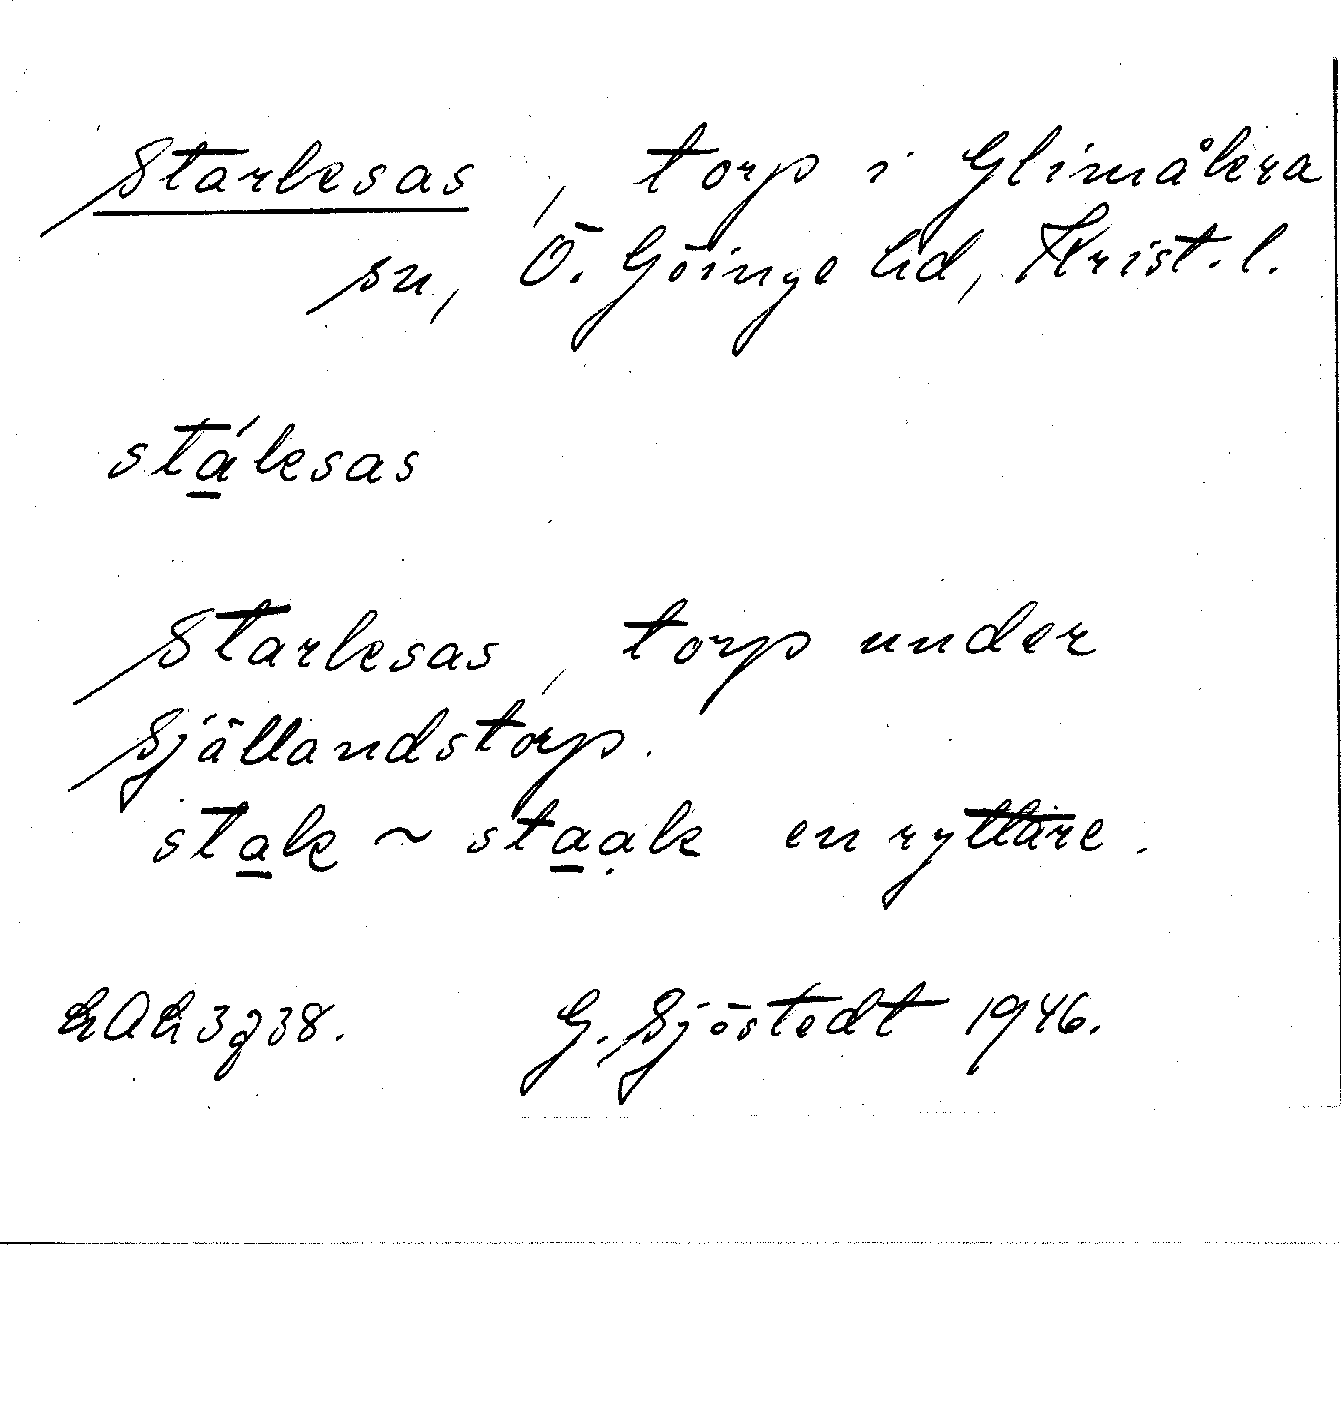 Starkesas, torp i Glimåkra
sn, Ö. Göinge hd, Krist. l.
stákesas
Starkesas, torp under
Själlandstorp.
stak ~ staak en ryttare.
G. Sjöstedt 1946.